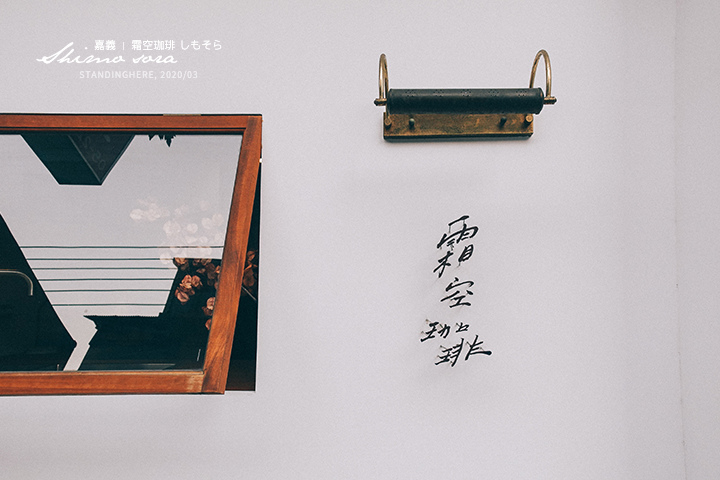 嘉義 | 霜空珈琲 しもそら
Shimo sora
STANDINGHERE, 2020/03
霜
空
珈
琲